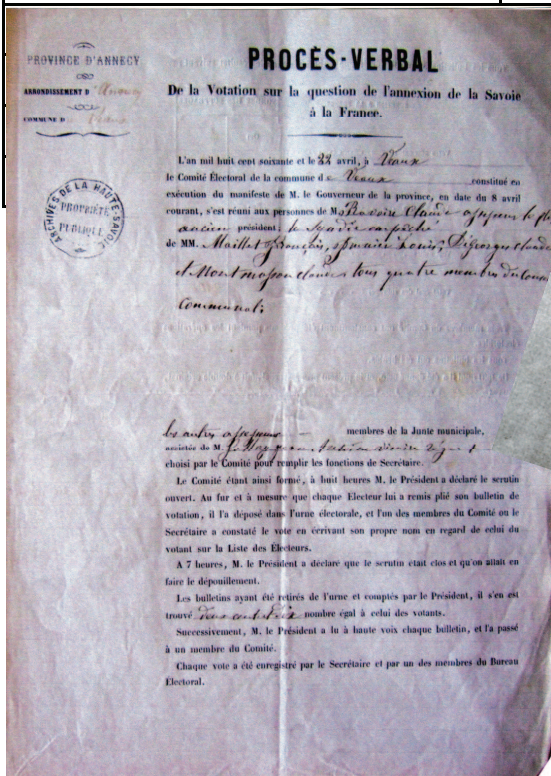 PROVINCE D'ANNECY
ARRONDISSEMENT D'Annecy
COMMUNE D
PROCÈS-VERBAL
De la Votation sur la question de l'annexion de la Savoie
à la France.
L'an mil huit cent soixante et le 22 avril, à Veaux
le Comité Électoral de la commune de Veaux constitué en
exécution du manifeste de M. le Gouverneur de la province, en date du 8 avril
courant, s'est réuni aux personnes de M. Claude le
ancien président; le Syndic empêché
de MM. Maillet François, Louis, Claude
et Montmasson Claude tous quatre membres du
Communal;
ARCHIVES DE LA HAUTE-SAVOIE
PROPRIÉTÉ
PUBLIQUE
les autres membres de la Junte municipale,
assistés de M.
choisi par le Comité pour remplir les fonctions de Secrétaire.
Le Comité étant ainsi formé, à huit heures M. le Président a déclaré le scrutin
ouvert. Au fur et à mesure que chaque Electeur lui a remis plié son bulletin de
votation, il l'a déposé dans l'urne électorale, et l'un des membres du Comité ou le
Secrétaire a constaté le vote en écrivant son propre nom en regard de celui du
votant sur la Liste des Électeurs.
A 7 heures, M. le Président a déclaré que le scrutin était clos et qu'on allait en
faire le dépouillement.
Les bulletins ayant été retirés de l'urne et comptés par le Président, il s'en est
trouvé deux cent dix nombre égal à celui des votants.
Successivement, M. le Président a lu à haute voix chaque bulletin, et l'a passé
à un membre du Comité.
Chaque vote a été enregistré par le Secrétaire et par un des membres du Bureau
Électoral.